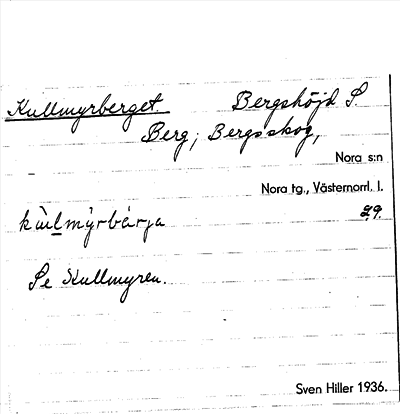 Kullmyrberget. Bergshöjd S.
Berg; Bergsskog,
Nora s:n
Nora tg., Västernorrl. l.
kùlmỳrbàrja 29.
Se Kullmyren.
Sven Hiller 1936.